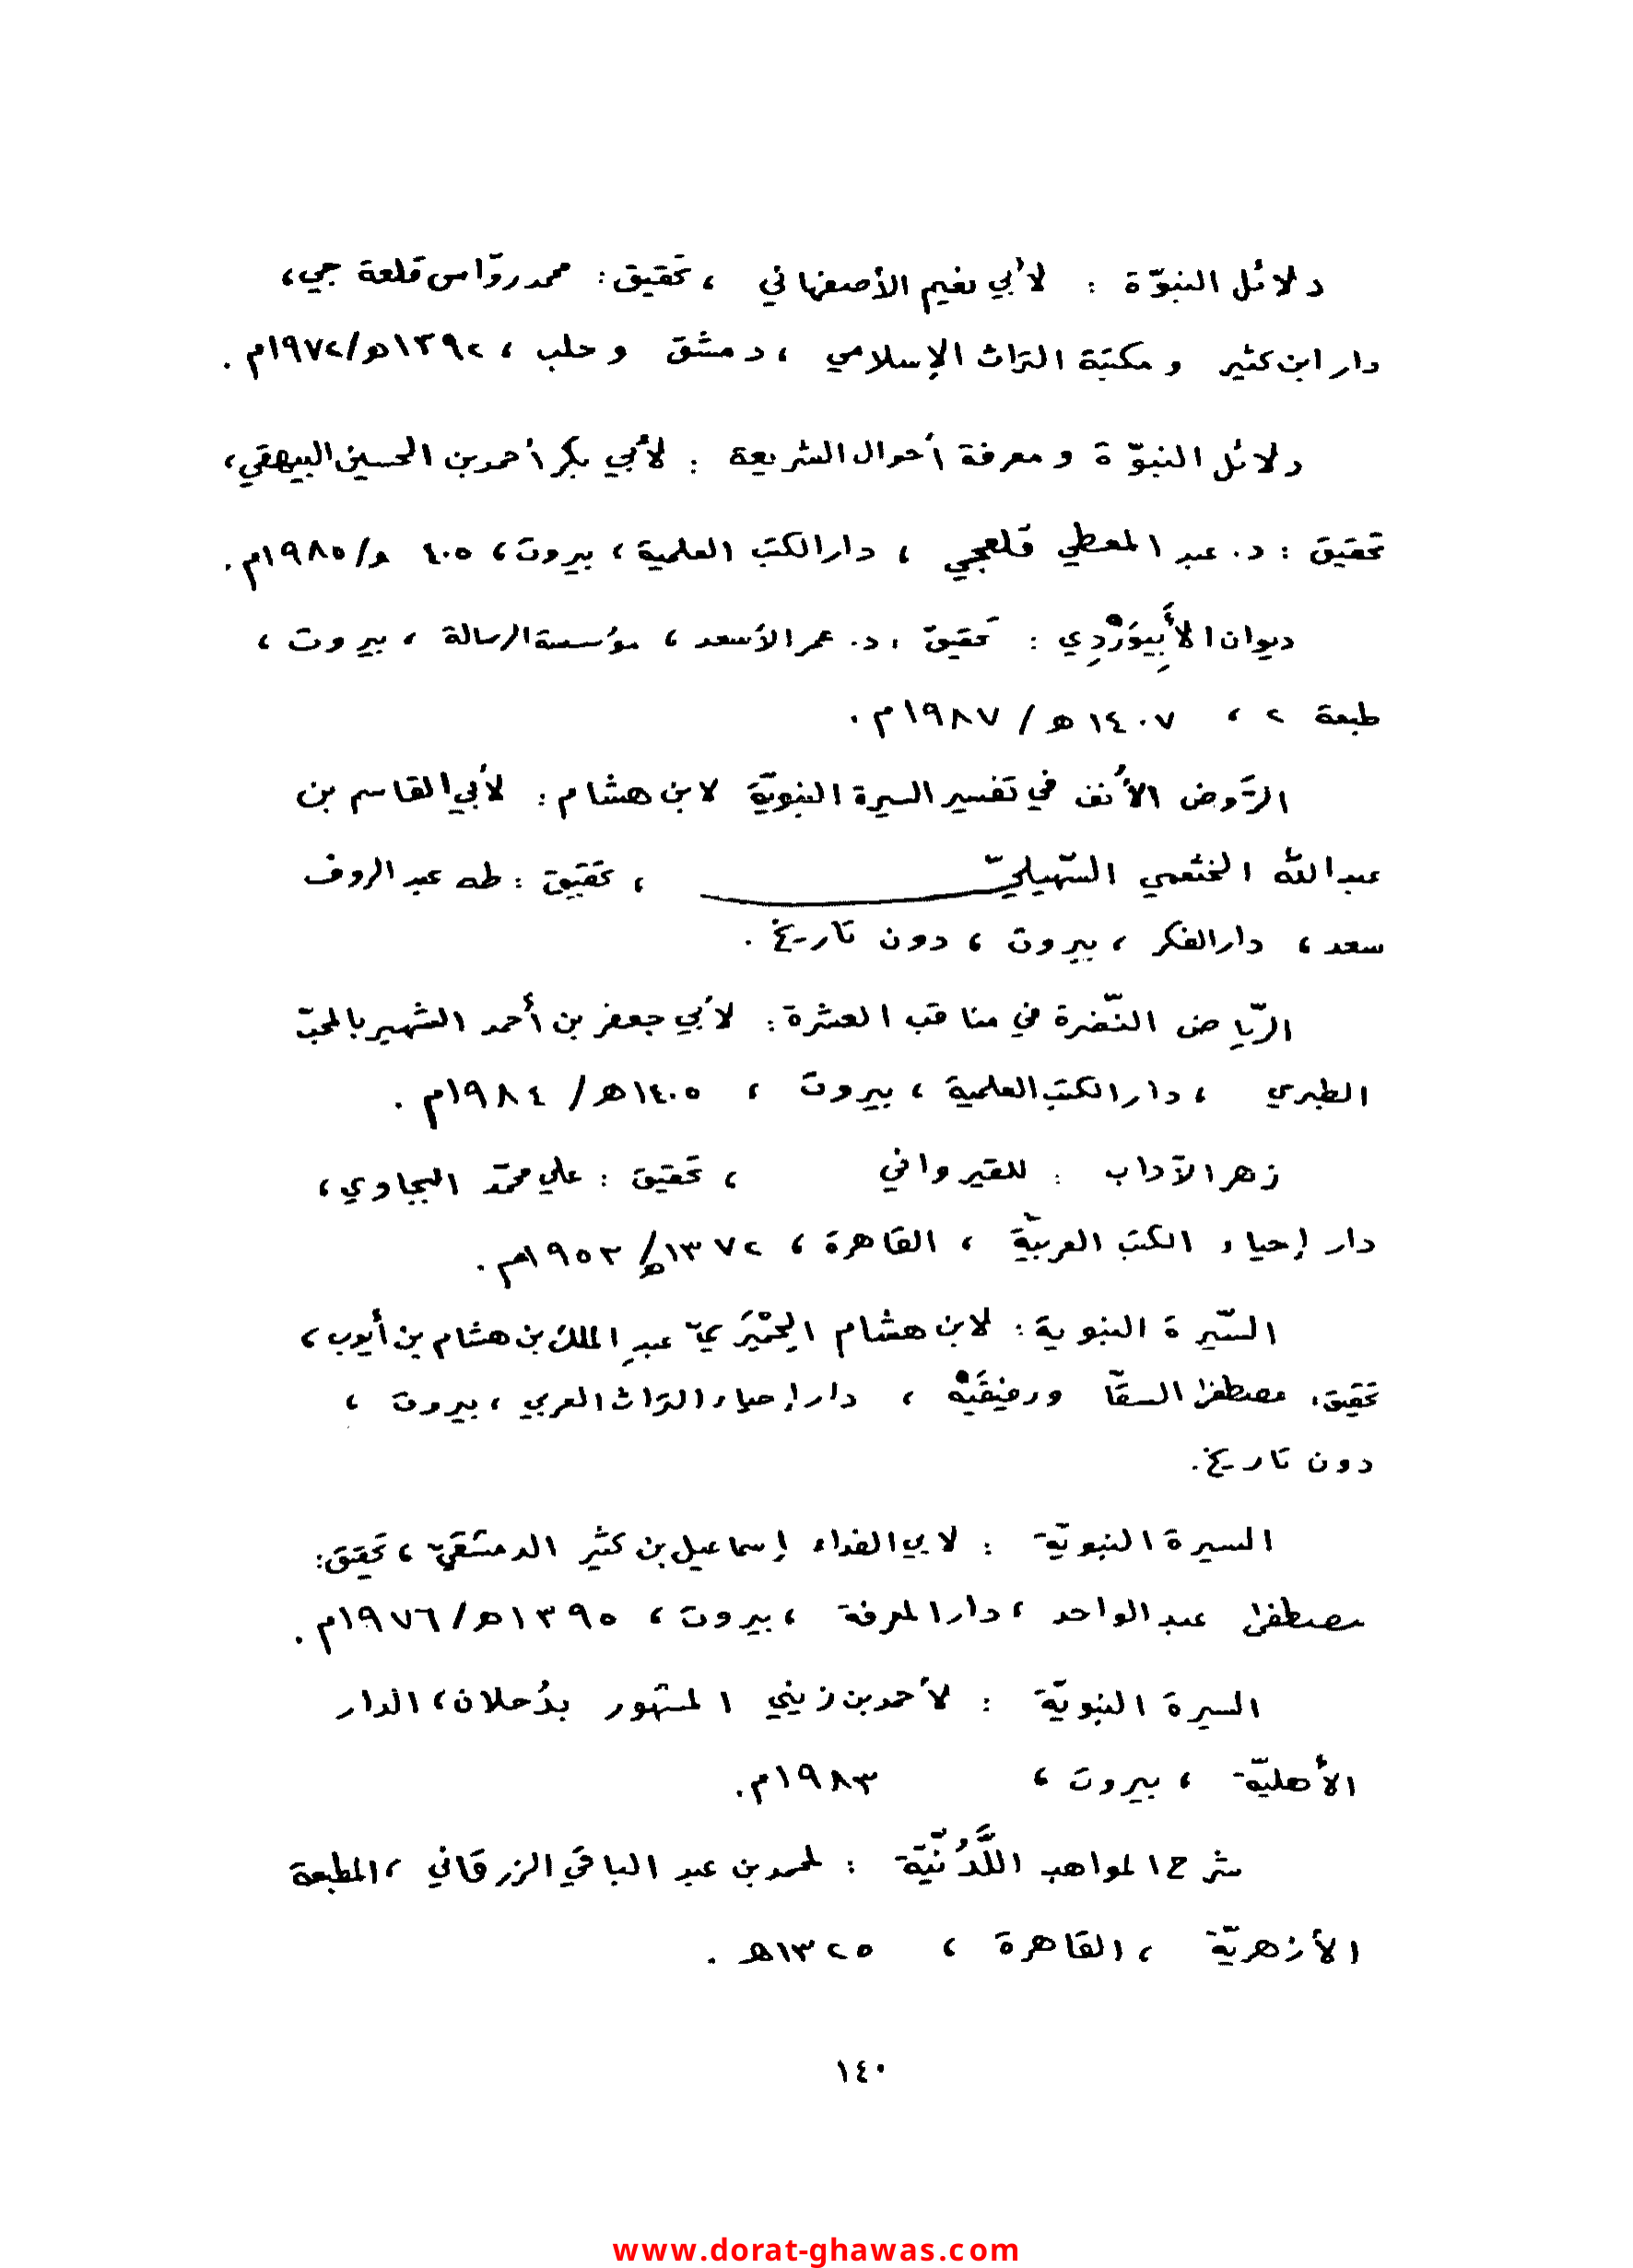 دلائل النبوّة : لأبي نعيم الأصفهاني ، تحقيق : محمد روّاس قلعة جي،
دار ابن كثير و مكتبة التراث الإسلامي ، دمشق و حلب ، ١٣٩٢هـ/١٩٧٢م .
دلائل النبوّة و معرفة أحوال الشريعة : لأبي بكر أحمد بن الحسين البيهقي،
تحقيق : د. عبد المعطي قلعجي ، دار الكتب العلمية ، بيروت ، ٤٠٥ هـ/١٩٨٥م.
ديوان الأَبِيوَرْدِي : تحقيق : د. عمر الأسعد ، مؤسسة الرسالة ، بيروت ،
طبعة ٢ ، ١٤٠٧ هـ / ١٩٨٧م .
الرَّوض الأُنف في تفسير السيرة النبويّة لابن هشام : لأبي القاسم بن
عبد الله الخثعمي السّهيليّ ، تحقيق : طه عبد الروف
سعد ، دار الفكر ، بيروت ، دون تاريخ .
الرّياض النّضرة في مناقب العشرة : لأبي جعفر بن أحمد الشهير بالمحبّ
الطبري ، دار الكتب العلمية ، بيروت ، ١٤٠٥هـ / ١٩٨٤م .
زهر الآداب : للقيرواني ، تحقيق : علي محمّد البجاوي ،
دار إحياء الكتب العربيّة ، القاهرة ، ١٣٧٢هـ/ ١٩٥٣م .
السّيرة النبوية : لابن هشام الحِمْيَريّ عبد الملك بن هشام بن أيوب ،
تحقيق : مصطفى السقّا ورفيقَيْه ، دار إحياء التراث العربي ، بيروت ،
دون تاريخ .
السيرة النبويّة : لابي الفداء إسماعيل بن كثير الدمشقيّ ، تحقيق :
مصطفى عبد الواحد ، دار المعرفة ، بيروت ، ١٣٩٥هـ/١٩٧٦م .
السيرة النبويّة : لأحمد بن زيني المشهور بدُحلان ، الدار
الأهليّة ، بيروت ، ١٩٨٣م.
شرح المواهب اللَّدُنّيّة : لمحمد بن عبد الباقي الزرقاني ، المطبعة
الأزهريّة ، القاهرة ، ١٣٢٥هـ .
١٤٠
www.dorat-ghawas.com